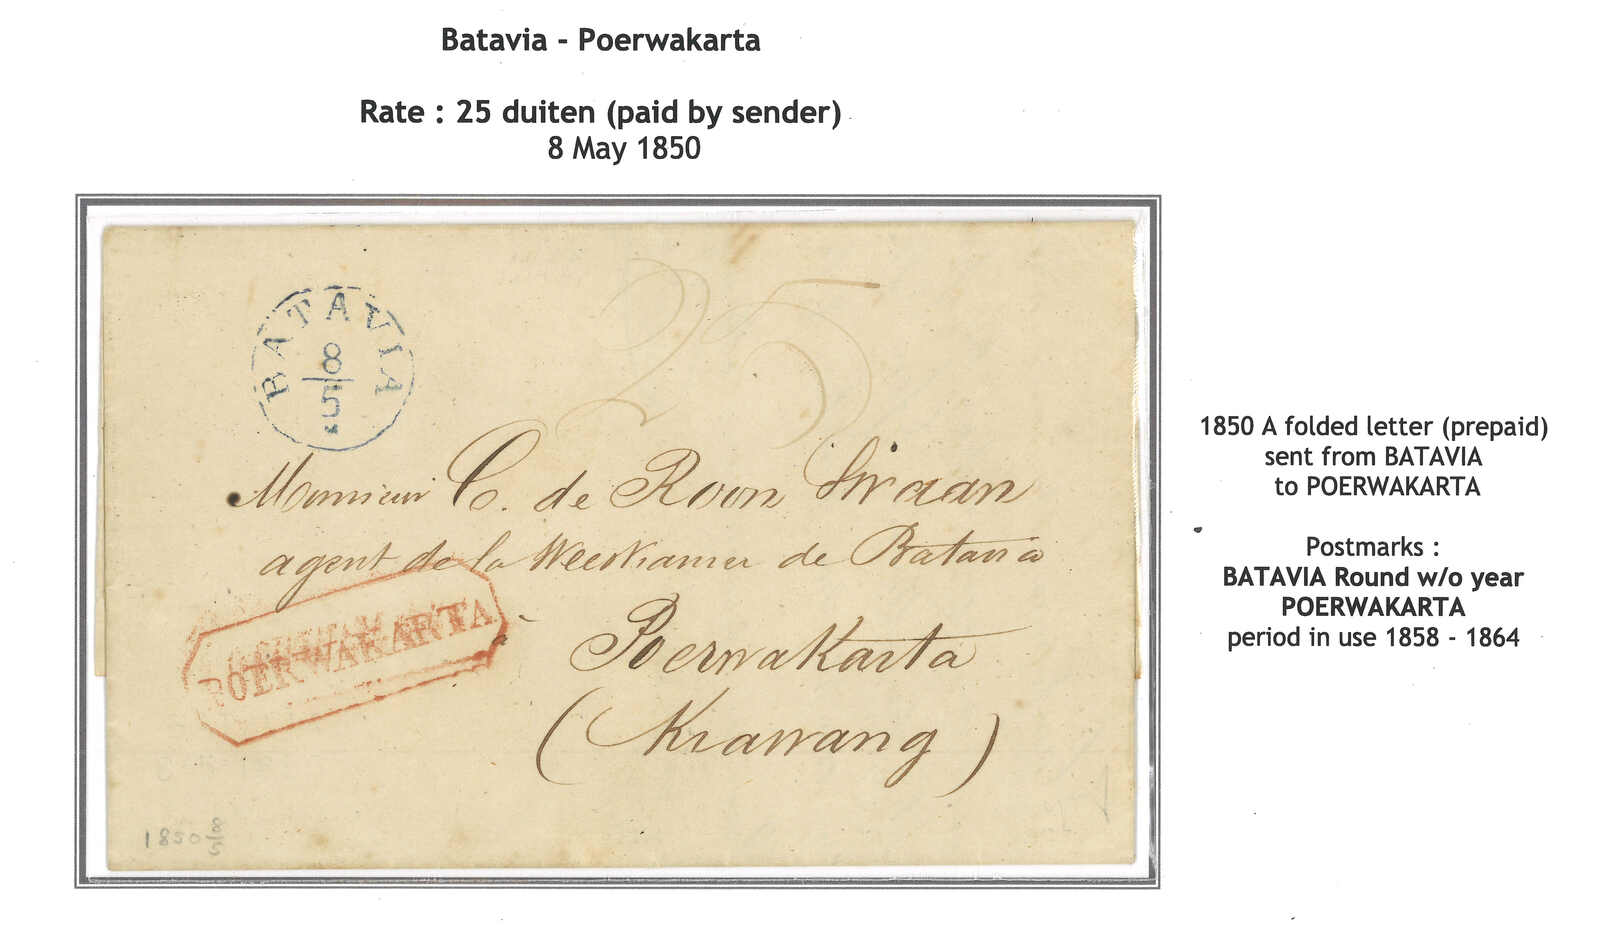 Batavia - Poerwakarta
Rate : 25 duiten (paid by sender)
8 May 1850
BATAVIA
8
5
25
Monsieur C. de Roon Swaan
agent de la Weeskamer de Batavia
à Poerwakarta
(Krawang)
POERWAKARTA
1850 8/5
1850 A folded letter (prepaid)
sent from BATAVIA
to POERWAKARTA
Postmarks :
BATAVIA Round w/o year
POERWAKARTA
period in use 1858 - 1864